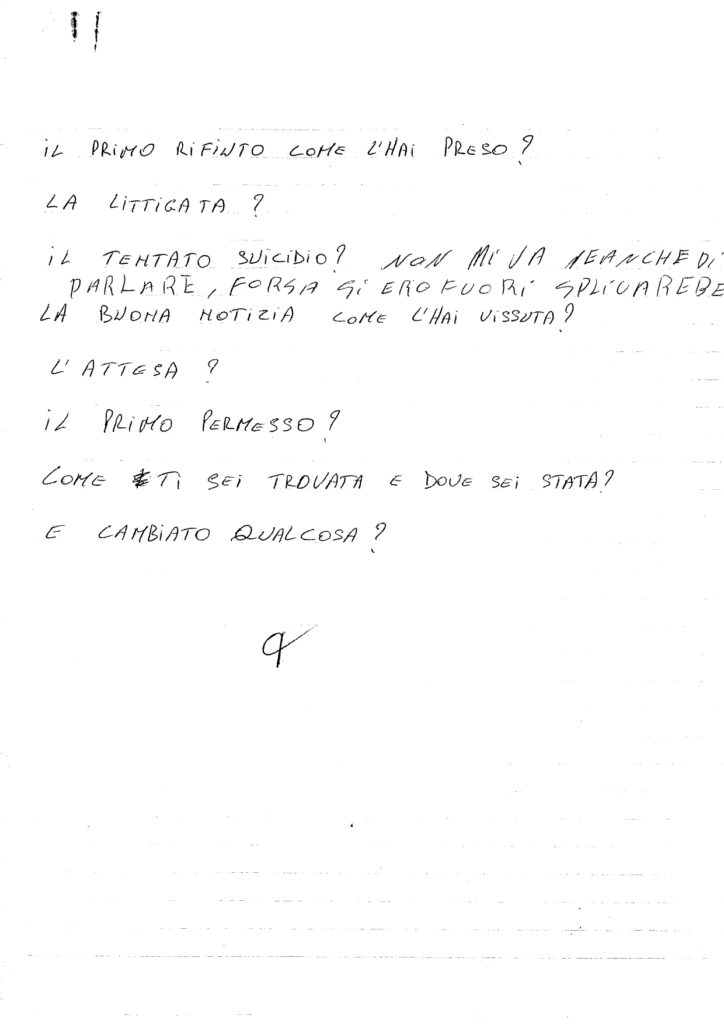 11
IL PRIMO RIFINTO COME L'HAI PRESO?
LA LITTIGATA ?
IL TENTATO SUICIDIO? NON MI VA NEANCHE DI
PARLARE, FORSA SI ERO FUORI SPLIVAREBE
LA BUONA NOTIZIA COME L'HAI VISSUTA?
L'ATTESA ?
IL PRIMO PERMESSO?
COME TI SEI TROVATA E DOVE SEI STATA?
E CAMBIATO QUALCOSA ?